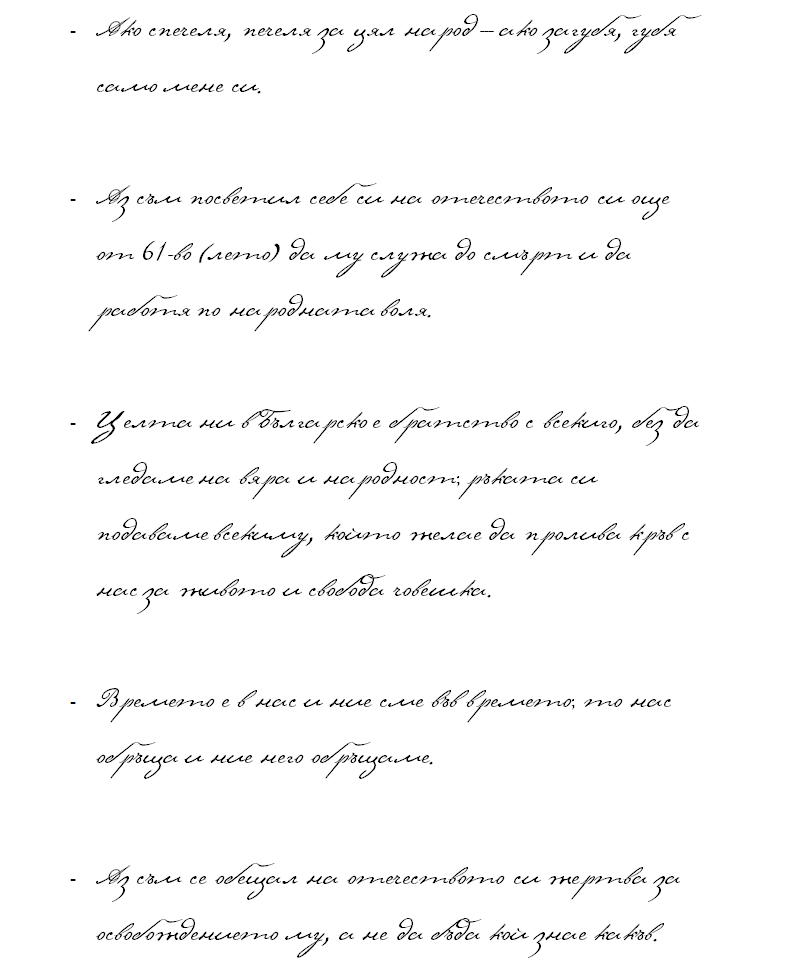 - Ако спечеля, печеля за цял народ – ако загубя, губя
само мене си.
- Аз съм посветил себе си на отечеството си още
от 61-во (лето) да му служа до смърт и да
работя по народната воля.
- Целта ни в Българско е братство с всекиго, без да
гледаме на вяра и народност; ръката си
подаваме всекиму, който желае да пролива кръв с
нас за живото и свобода човешка.
- Времето е в нас и ние сме във времето; то нас
обръща и ние него обръщаме.
- Аз съм се обещал на отечеството си жертва за
освобождението му, а не да бъда кой знае какъв.